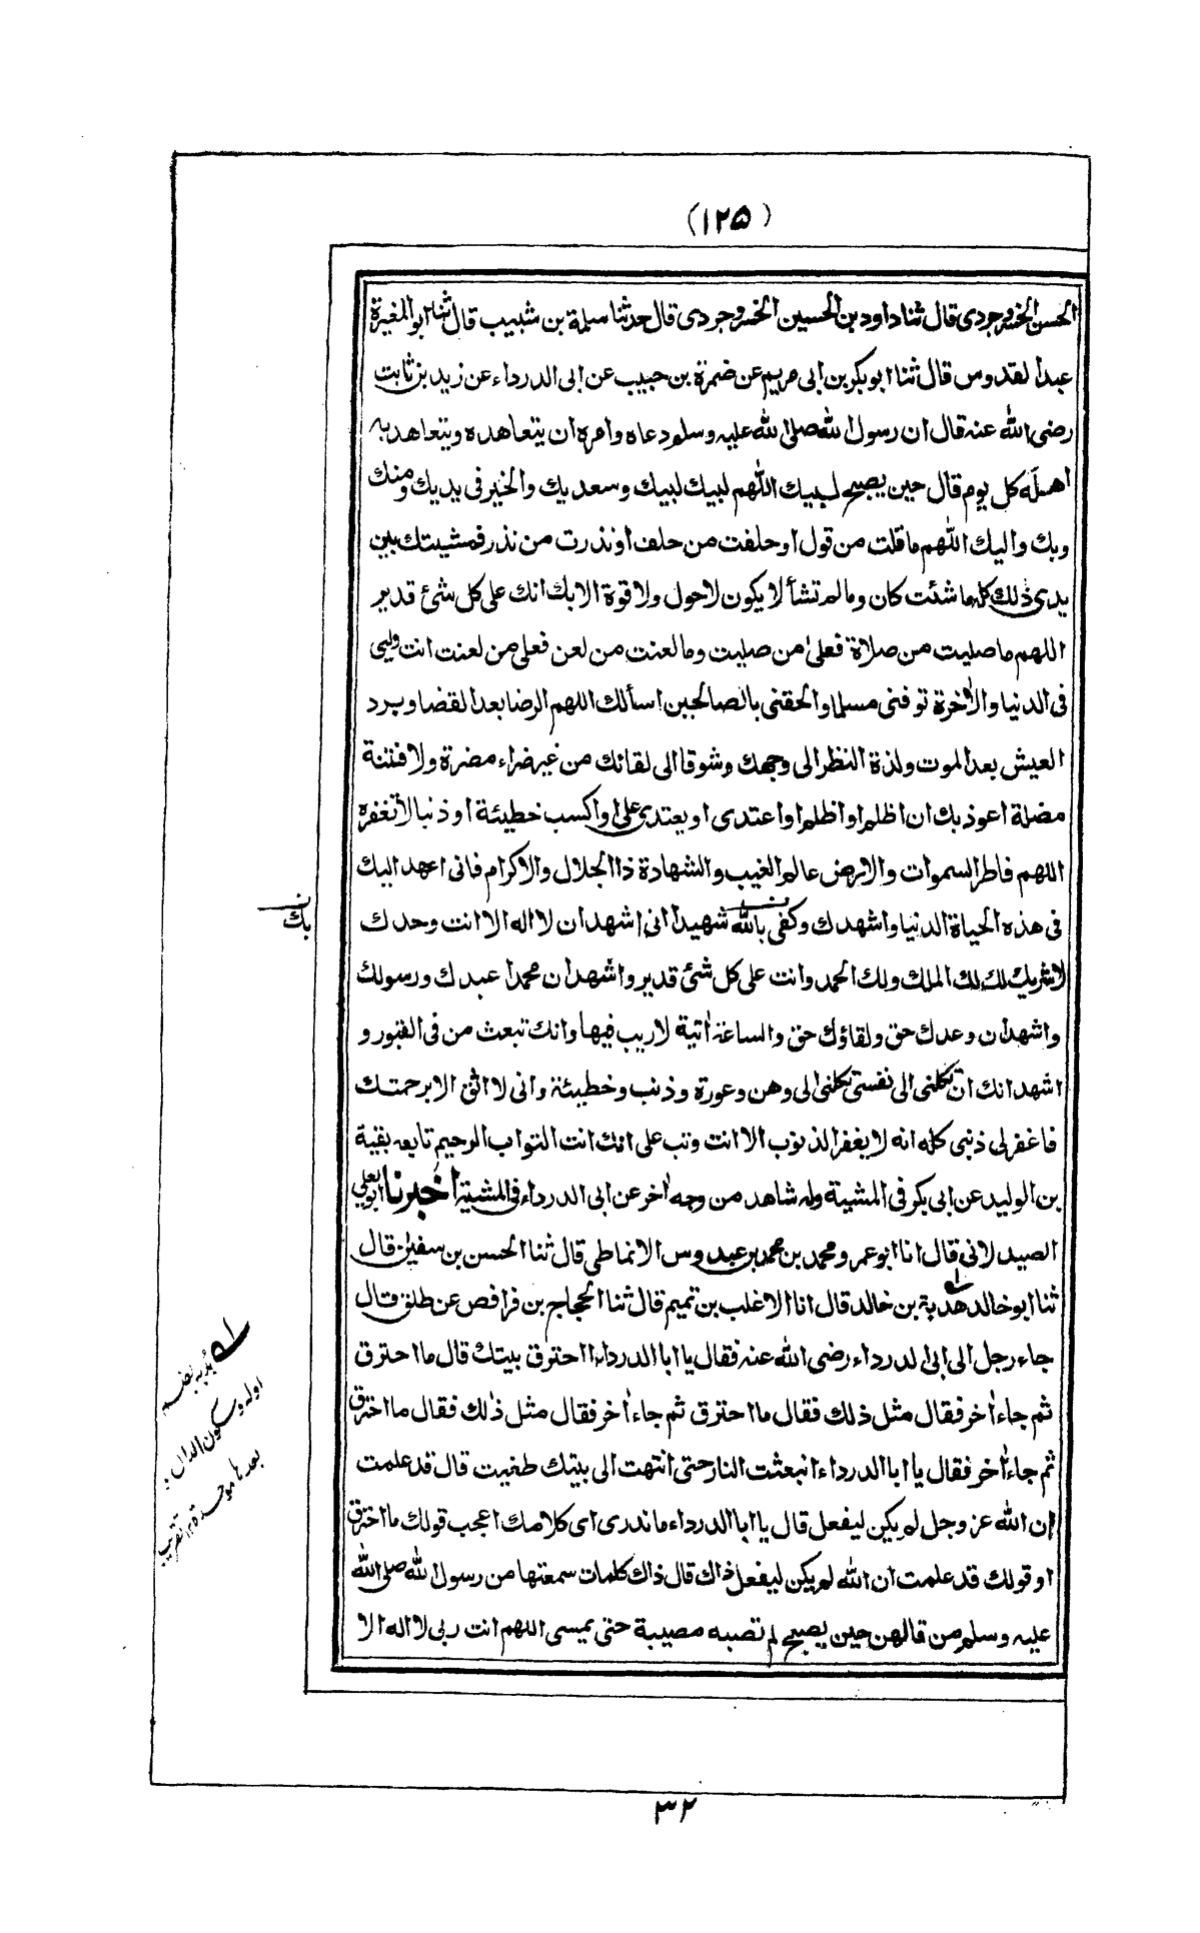 (١٢۵)
الحسن الخسروجردى قال ثنا داود بن الحسين الخسروجردى قال حدثنا سلمة بن شبيب قال ثنا ابو المغيرة
عبد القدوس قال ثنا ابو بكر بن ابى مريم عن ضمرة بن حبيب عن ابى الدرداء عن زيد بن ثابت
رضى الله عنه قال ان رسول الله صلى الله عليه وسلم دعاه وامره ان يتعاهده ويتعاهد به
اهله كل يوم قال حين يصبح لبيك اللهم لبيك لبيك وسعديك والخير فى يديك ومنك
وبك واليك اللهم ما قلت من قول او حلفت من حلف او نذرت من نذر فمشيتك بين
يدى ذلك كله ما شئت كان وما لم تشأ لا يكون لا حول ولا قوة الا بك انك على كل شئ قدير
اللهم ما صليت من صلاة فعلى من صليت وما لعنت من لعن فعلى من لعنت انت وليى
فى الدنيا والأخرة توفنى مسلما والحقنى بالصالحين اسألك اللهم الرضا بعد القضا وبرد
العيش بعد الموت ولذة النظر الى وجهك وشوقا الى لقائك من غير ضراء مضرة ولا فتنة
مضلة اعوذ بك ان اظلم او اظلم او اعتدى او يعتدى على او اكسب خطيئة او ذنبا لا تغفره
اللهم فاطر السموات والارض عالم الغيب والشهادة ذا الجلال والاكرام فانى اعهد اليك
فى هذه الحياة الدنيا واشهدك وكفى بالله شهيدا انى اشهد ان لا اله الا انت وحدك
بك
لا شريك لك لك الملك ولك الحمد وانت على كل شئ قدير واشهد ان محمدا عبدك ورسولك
واشهد ان وعدك حق ولقاؤك حق والساعة أتية لا ريب فيها وانك تبعث من فى القبور و
اشهد انك ان تكلنى الى نفسى تكلنى الى وهن وعورة وذنب وخطيئة وانى لا اثق الا برحمتك
فاغفر لى ذنبى كله انه لا يغفر الذنوب الا انت وتب على انك انت التواب الرحيم تابعه بقية
بن الوليد عن ابى بكر فى المشية وله شاهد من وجه أخر عن ابى الدرداء فى المشية اخبرنا ابو يعلى
الصيدلانى قال انا ابو عمرو محمد بن محمد بن عبدوس الانماطى قال ثنا الحسن بن سفين قال
ثنا ابو خالد هدبة بن خالد قال انا الاغلب بن تميم قال ثنا الحجاج بن فرافص عن طلق قال
جاء رجل الى ابى الدرداء رضى الله عنه فقال يا ابا الدرداء احترق بيتك قال ما احترق
ثم جاء أخر فقال مثل ذلك فقال ما احترق ثم جاء أخر فقال مثل ذلك فقال ما احترق
ثم جاء أخر فقال يا ابا الدرداء انبعثت النار حتى انتهت الى بيتك طغيت قال قد علمت
ان الله عز وجل لم يكن ليفعل قال يا ابا الدرداء ما ندرى اى كلامك اعجب قولك ما احترق
او قولك قد علمت ان الله لم يكن ليفعل ذاك قال ذاك كلمات سمعتها من رسول الله صلى الله
عليه وسلم من قالهن حين يصبح لم تصبه مصيبة حتى يمسى اللهم انت ربى لا اله الا
له هدبة بضم
اوله وسكون الدال
بعدها موحدة ١٢ تقريب
٣٢